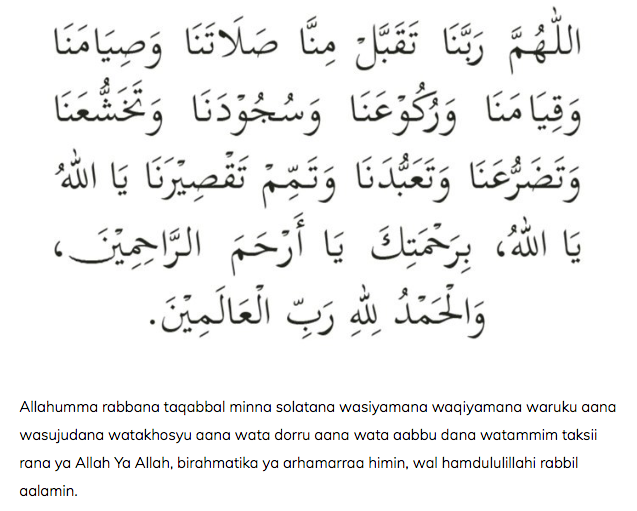 اللّٰهُمَّ رَبَّنَا تَقَبَّلْ مِنَّا صَلَاتَنَا وَصِيَامَنَا
وَقِيَامَنَا وَرُكُوْعَنَا وَسُجُوْدَنَا وَتَخَشُّعَنَا
وَتَضَرُّعَنَا وَتَعَبُّدَنَا وَتَمِّمْ تَقْصِيْرَنَا يَا اللّٰهُ
يَا اللّٰهُ، بِرَحْمَتِكَ يَا أَرْحَمَ الرَّاحِمِيْنَ،
وَالْحَمْدُ لِلّٰهِ رَبِّ الْعَالَمِيْنَ.
Allahumma rabbana taqabbal minna solatana wasiyamana waqiyamana waruku aana
wasujudana watakhosyu aana wata dorru aana wata aabbu dana watammim taksii
rana ya Allah Ya Allah, birahmatika ya arhamarraa himin, wal hamdululillahi rabbil
aalamin.